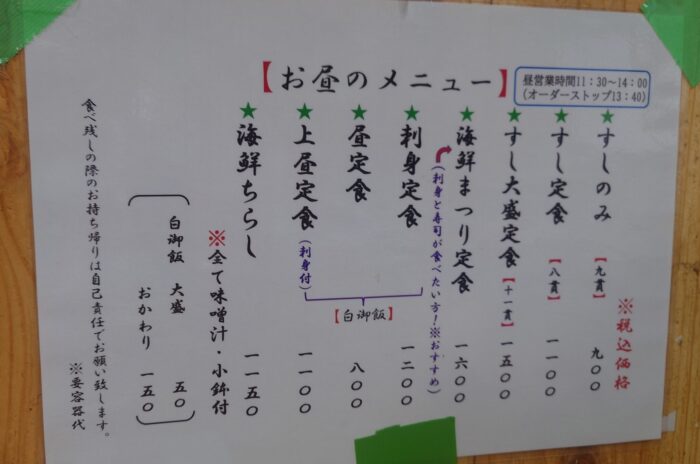 【お昼のメニュー】
昼営業時間11:30～14:00
(オーダーストップ13:40)
※税込価格
★すしのみ【九貫】九〇〇
★すし定食【八貫】一一〇〇
★すし大盛定食【十一貫】一五〇〇
★海鮮まつり定食 一六〇〇
(刺身と寿司が食べたい方！※おすすめ)
★刺身定食 一二〇〇
★昼定食 八〇〇
★上昼定食(刺身付)一一〇〇
【白御飯】
★海鮮ちらし 一一五〇
※全て味噌汁・小鉢付
白御飯 大盛 五〇
おかわり 一五〇
食べ残しの際のお持ち帰りは自己責任でお願い致します。
※要容器代